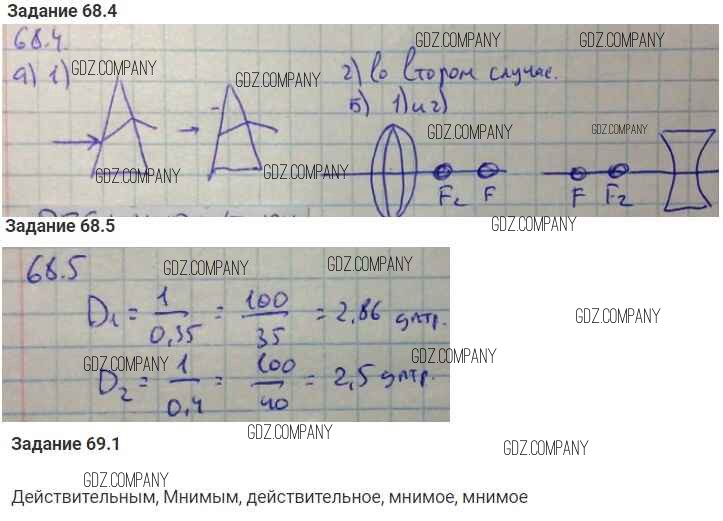 Задание 68.4
68.4.
GDZ.COMPANY
а) 1)
GDZ.COMPANY
GDZ.COMPANY
2) во втором случае.
GDZ.COMPANY
Б) 1) и 2)
GDZ.COMPANY
GDZ.COMPANY
GDZ.COMPANY
GDZ.COMPANY
F₂ F F F₂
Задание 68.5
GDZ.COMPANY
68.5
GDZ.COMPANY
GDZ.COMPANY
D₁ = 1/0,35 = 100/35 = 2,86 дптр.
GDZ.COMPANY
GDZ.COMPANY
GDZ.COMPANY
D₂ = 1/0,4 = 100/40 = 2,5 дптр.
GDZ.COMPANY
Задание 69.1
GDZ.COMPANY
GDZ.COMPANY
Действительным, Мнимым, действительное, мнимое, мнимое